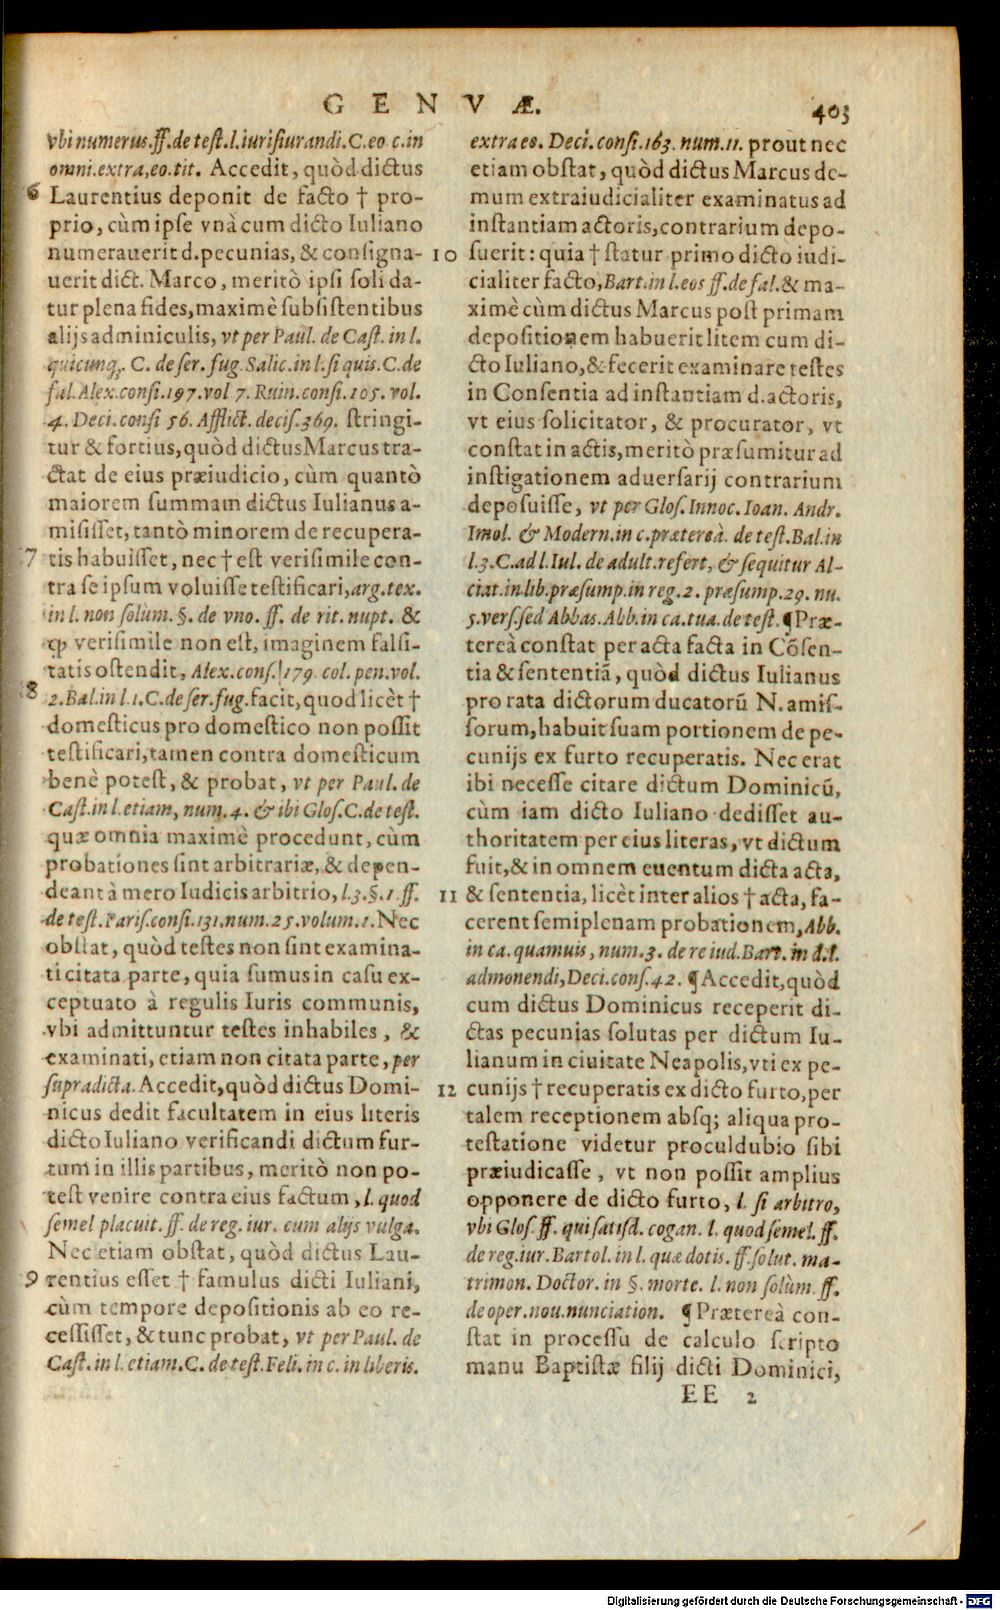 GENVÆ.
403
vbi numerus.ff.de test.l.iurisiurandi.C.eo c.in
omni.extra,eo.tit. Accedit, quòd dictus
6 Laurentius deponit de facto † pro-
prio, cùm ipse vnà cum dicto Iuliano
numerauerit d.pecunias, & consigna-
uerit dict. Marco, meritò ipsi soli da-
tur plena fides, maximè subsistentibus
alijs adminiculis, vt per Paul. de Cast. in l.
quicunq;. C. de ser. fug. Salic. in l. si quis. C. de
fal. Alex. consi. 197. vol 7. Ruin. consi. 105. vol.
4. Deci. consi 56. Afflict. decis. 369. stringi-
tur & fortius, quòd dictus Marcus tra-
ctat de eius præiudicio, cùm quantò
maiorem summam dictus Iulianus a-
misisset, tantò minorem de recupera-
7 tis habuisset, nec † est verisimile con-
tra se ipsum voluisse testificari, arg. tex.
in l. non solùm. §. de vno. ff. de rit. nupt. &
ꝙ verisimile non est, imaginem falsi-
tatis ostendit, Alex. cons. 179 col. pen. vol.
8 2. Bal. in l 1. C. de ser. fug. facit, quod licèt †
domesticus pro domestico non possit
testificari, tamen contra domesticum
benè potest, & probat, vt per Paul. de
Cast. in l. etiam, num. 4. & ibi Glos. C. de test.
quæ omnia maximè procedunt, cùm
probationes sint arbitrariæ, & depen-
deant à mero Iudicis arbitrio, l.3.§.1.ff.
de test. Paris. consi. 131. num. 25. volum. 1. Nec
obstat, quòd testes non sint examina-
ti citata parte, quia sumus in casu ex-
ceptuato à regulis Iuris communis,
vbi admittuntur testes inhabiles, &
examinati, etiam non citata parte, per
supradicta. Accedit, quòd dictus Domi-
nicus dedit facultatem in eius literis
dicto Iuliano verificandi dictum fur-
tum in illis partibus, meritò non po-
test venire contra eius factum, l. quod
semel placuit. ff. de reg. iur. cum alijs vulga.
Nec etiam obstat, quòd dictus Lau-
9 rentius esset † famulus dicti Iuliani,
cùm tempore depositionis ab eo re-
cessisset, & tunc probat, vt per Paul. de
Cast. in l. etiam. C. de test. Feli. in c. in liberis.
extra eo. Deci. consi. 163. num. 11. prout nec
etiam obstat, quòd dictus Marcus de-
mum extraiudicialiter examinatus ad
instantiam actoris, contrarium depo-
10 suerit: quia † statur primo dicto iudi-
cialiter facto, Bart. in l. eos ff. de fal. & ma-
ximè cùm dictus Marcus post primam
depositionem habuerit litem cum di-
cto Iuliano, & fecerit examinare testes
in Consentia ad instantiam d. actoris,
vt eius solicitator, & procurator, vt
constat in actis, meritò præsumitur ad
instigationem aduersarij contrarium
deposuisse, vt per Glos. Innoc. Ioan. Andr.
Imol. & Modern. in c. præterà. de test. Bal. in
l.3. C. ad l. Iul. de adult. refert, & sequitur Al-
ciat. in lib. præsump. in reg. 2. præsump. 29. nu.
5. vers. sed Abbas. Abb. in ca. tua. de test. ¶ Præ-
tereà constat per acta facta in Cõsen-
tia & sententiã, quòd dictus Iulianus
pro rata dictorum ducatorũ N. amis-
sorum, habuit suam portionem de pe-
cunijs ex furto recuperatis. Nec erat
ibi necesse citare dictum Dominicũ,
cùm iam dicto Iuliano dedisset au-
thoritatem per eius literas, vt dictum
fuit, & in omnem euentum dicta acta,
11 & sententia, licèt inter alios † acta, fa-
cerent semiplenam probationem, Abb.
in ca. quamuis, num. 3. de re iud. Bart. in d. l.
admonendi, Deci. cons. 42. ¶ Accedit, quòd
cum dictus Dominicus receperit di-
ctas pecunias solutas per dictum Iu-
lianum in ciuitate Neapolis, vti ex pe-
12 cunijs † recuperatis ex dicto furto, per
talem receptionem absq; aliqua pro-
testatione videtur proculdubio sibi
præiudicasse, vt non possit amplius
opponere de dicto furto, l. si arbitro,
vbi Glos. ff. qui satisd. cogan. l. quod semel. ff.
de reg. iur. Bartol. in l. quæ dotis. ff. solut. ma-
trimon. Doctor. in §. morte. l. non solùm. ff.
de oper. nou. nunciation. ¶ Prætereà con-
stat in processu de calculo scripto
manu Baptistæ filij dicti Dominici,
EE 2
Digitalisierung gefördert durch die Deutsche Forschungsgemeinschaft - DFG